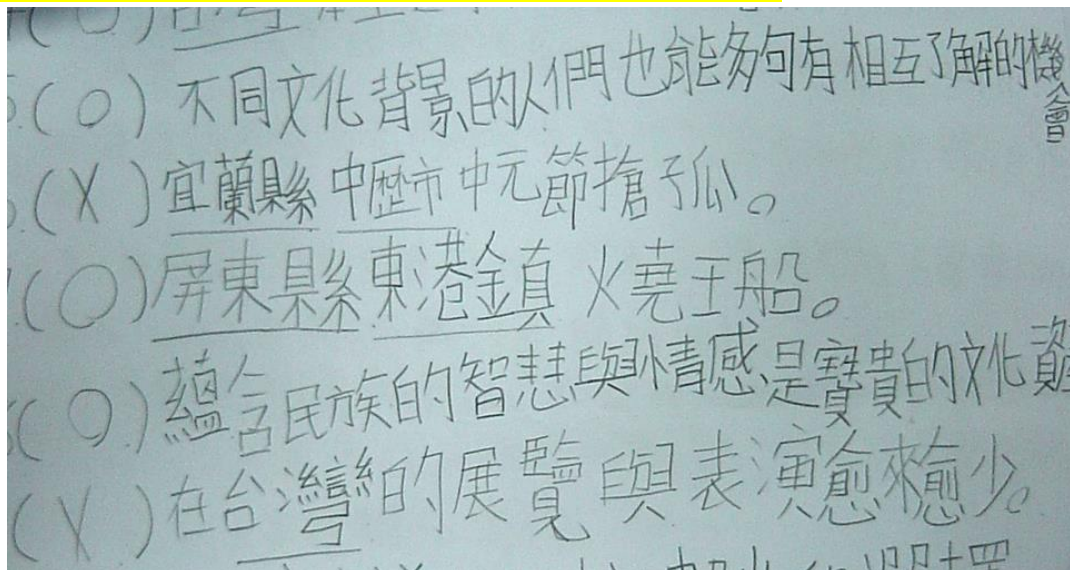 (O)台灣
(O)不同文化背景的人們也能夠有相互了解的機會
(X)宜蘭縣中壢市中元節搶孤。
(O)屏東縣東港鎮火燒王船。
(O)蘊含民族的智慧與情感是寶貴的文化資
(X)在台灣的展覽與表演愈來愈少。